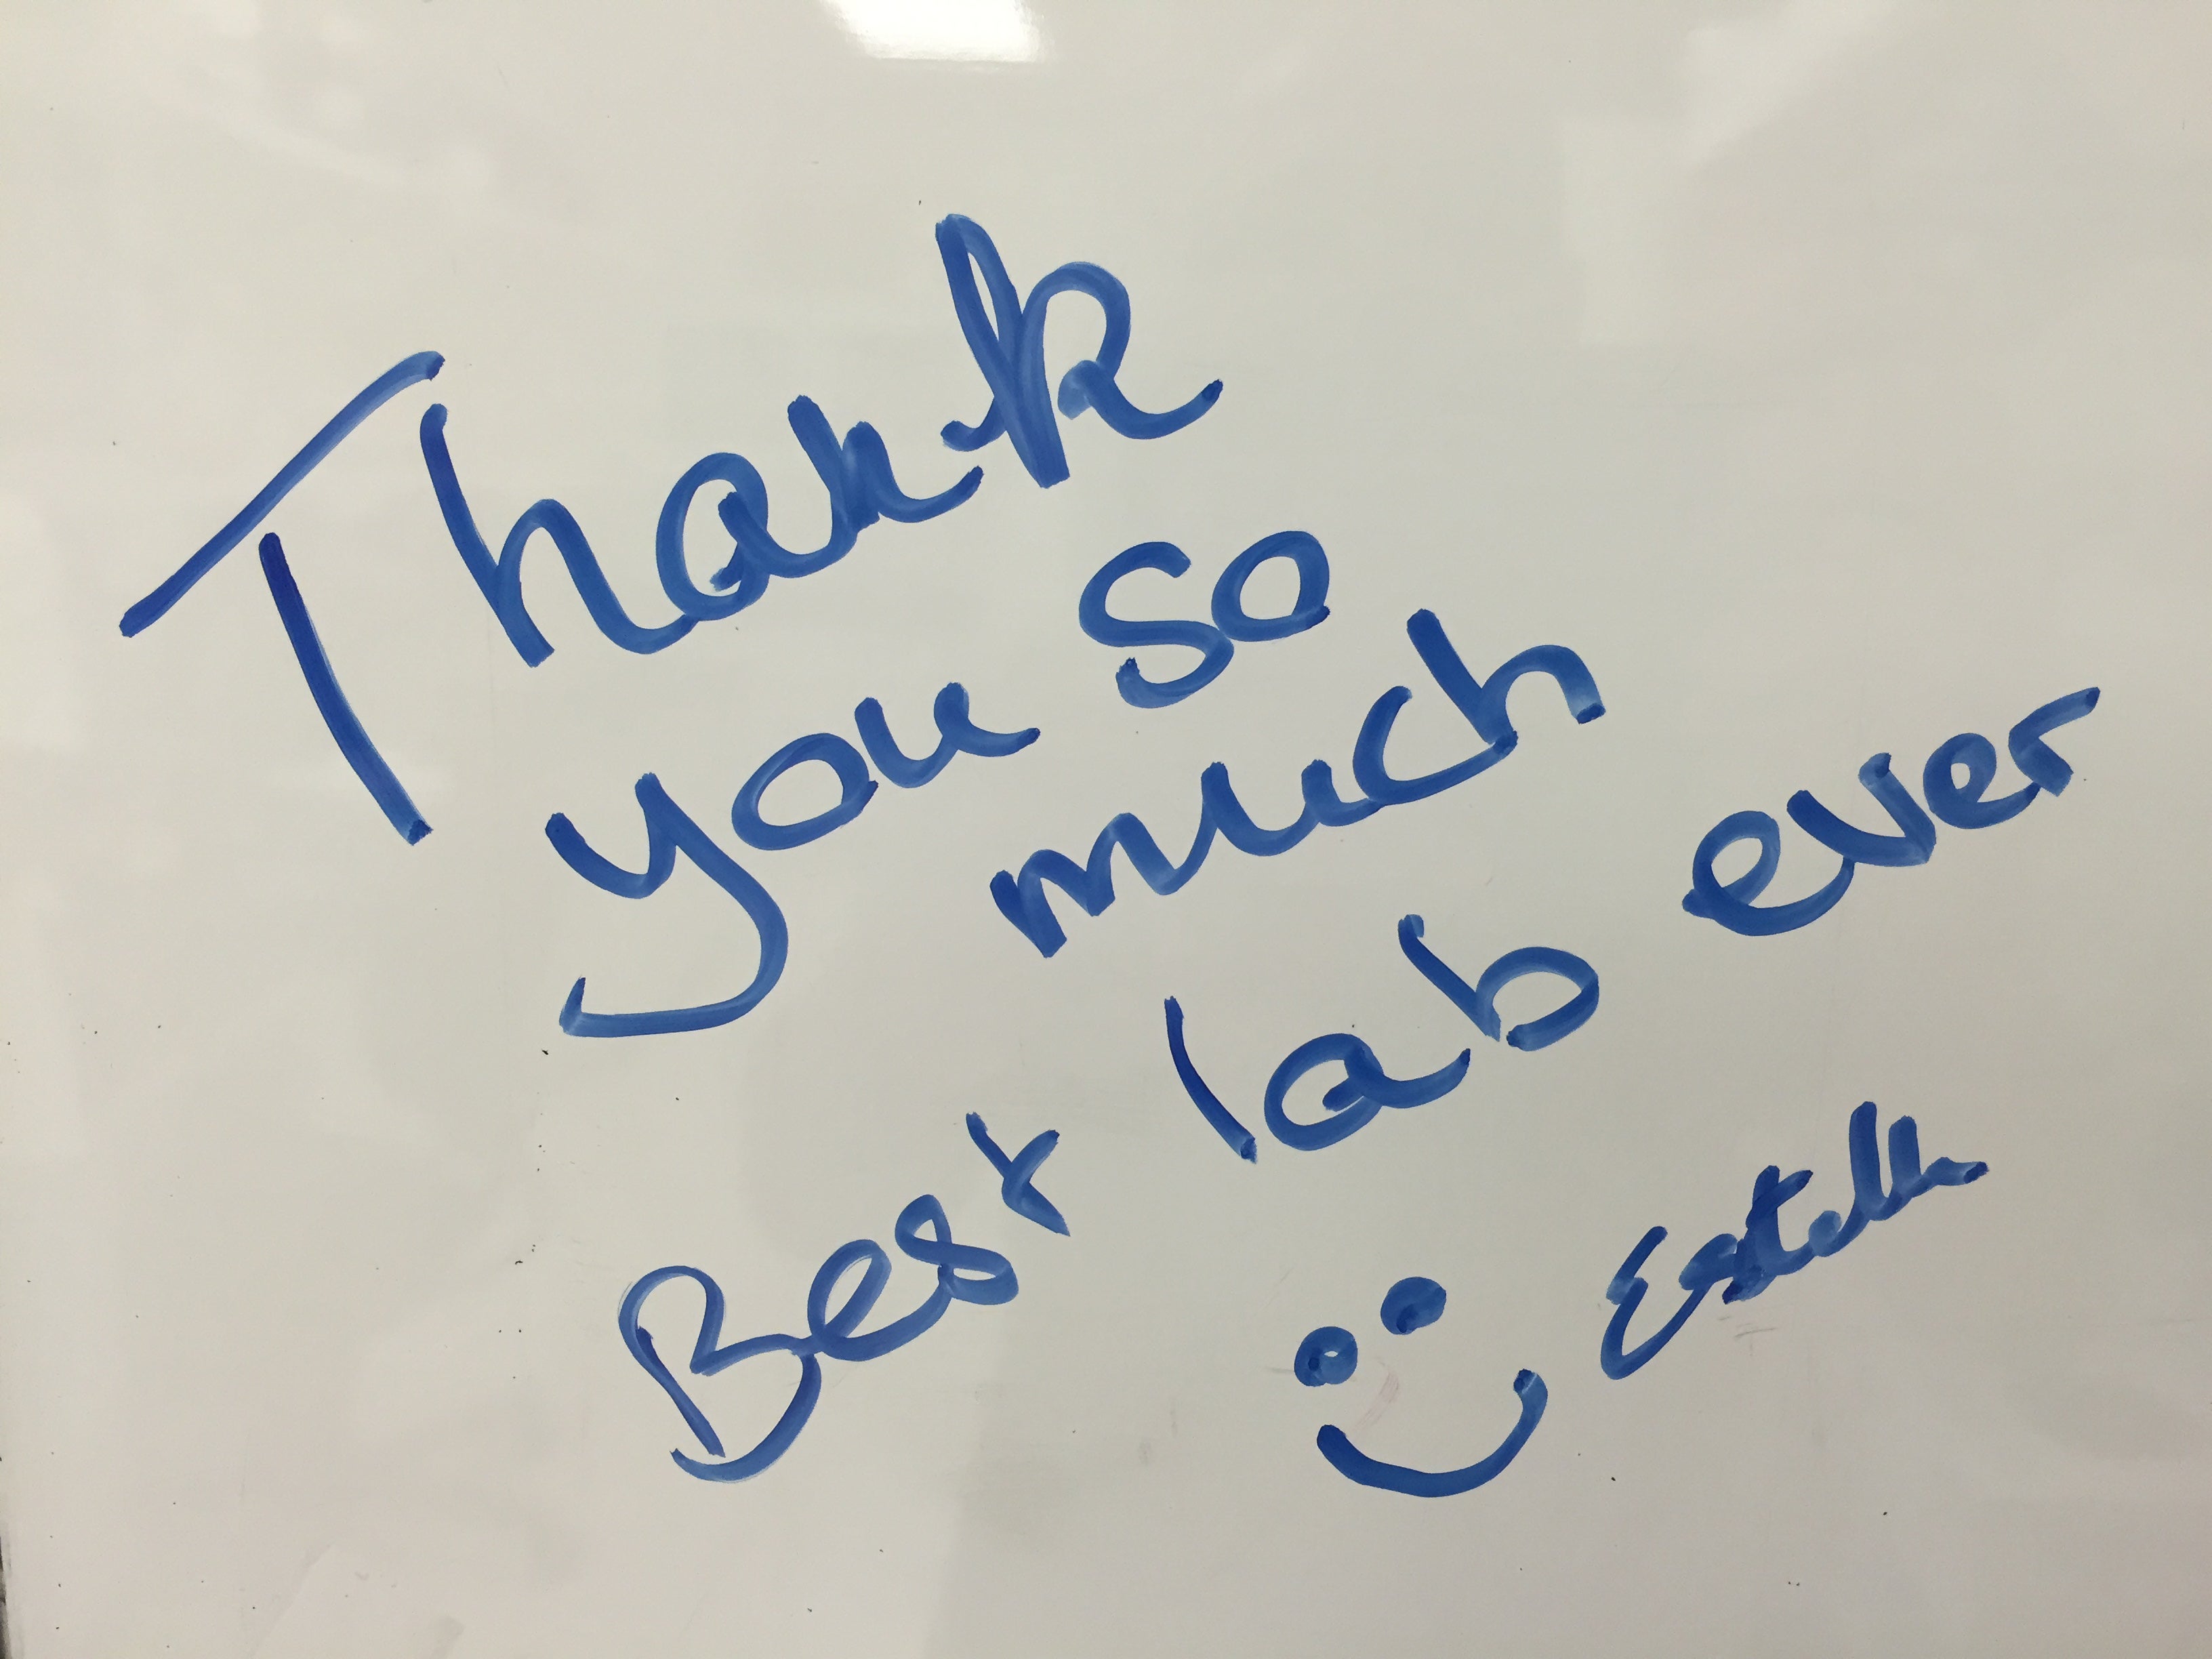 Thank
you so
much
Best lab ever
Estelle